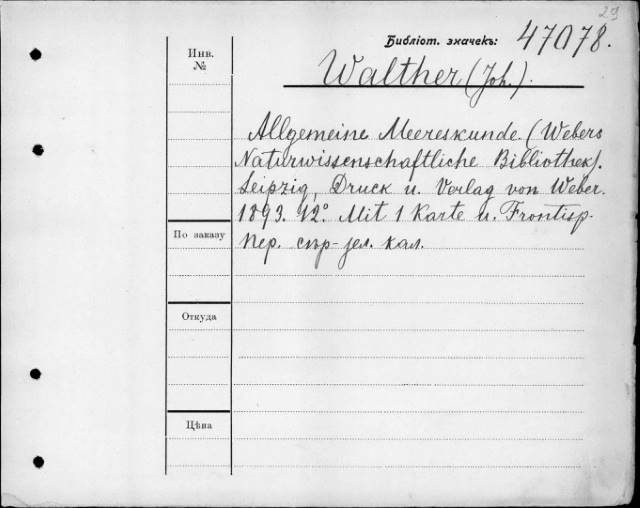 29
Библіот. значекъ: 47078.
Инв.
№
Walther (Joh.).
Allgemeine Meereskunde. (Webers
Naturwissenschaftliche Bibliothek).
Leipzig, Druck u. Verlag von Weber.
1893. 12°. Mit 1 Karte u. Frontisp.
По заказу
Пер. сѣр-зел. кал.
Откуда
Цѣна